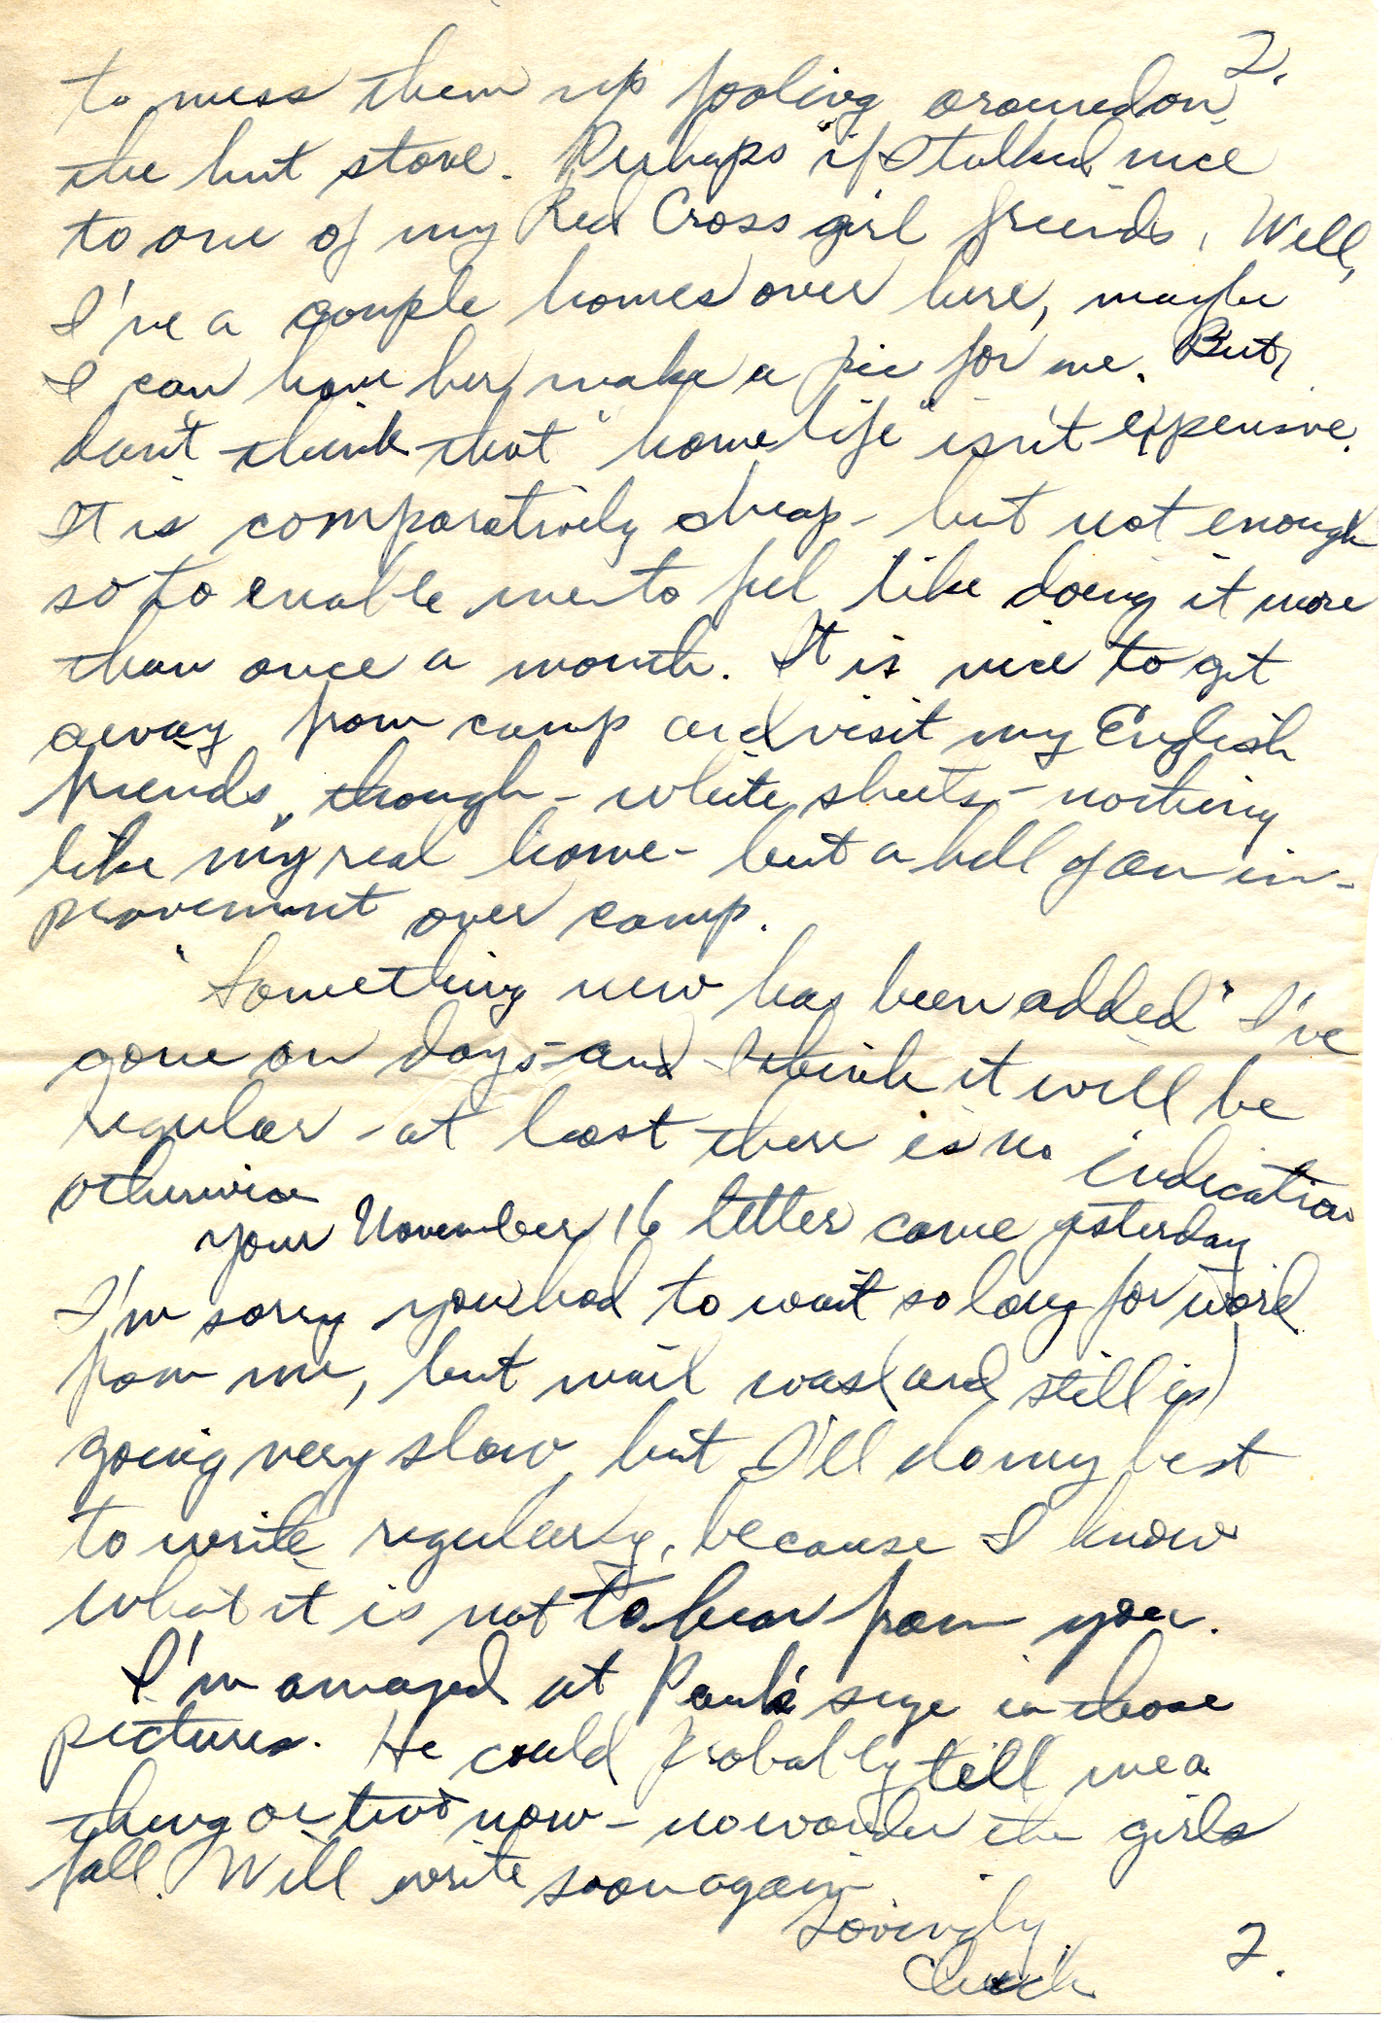 2.
to mess them up fooling around on
the hut stove. Perhaps if I talked nice
to one of my Red Cross girl friends. Well,
I've a couple homes over here, maybe
I can have her make a pie for me. But,
don't think that "home life" isn't expensive.
It is comparatively cheap - but not enough
so to enable me to feel like doing it more
than once a month. It is nice to get
away from camp and visit my English
friends, though - white sheets - nothing
like my real home - but a hell of an im-
provement over camp.
"Something new has been added" I've
gone on days - and I think it will be
regular - at least there is no indication
otherwise
Your November 16 letter came yesterday
I'm sorry you had to wait so long for word
from me, but mail was (and still is)
going very slow, but I'll do my best
to write regularly, because I know
what it is not to hear from you.
I'm amazed at Paul's size in those
pictures. He could probably tell me a
thing or two now - no wonder the girls
fall. Will write soon again
Lovingly,
Chuck
2.